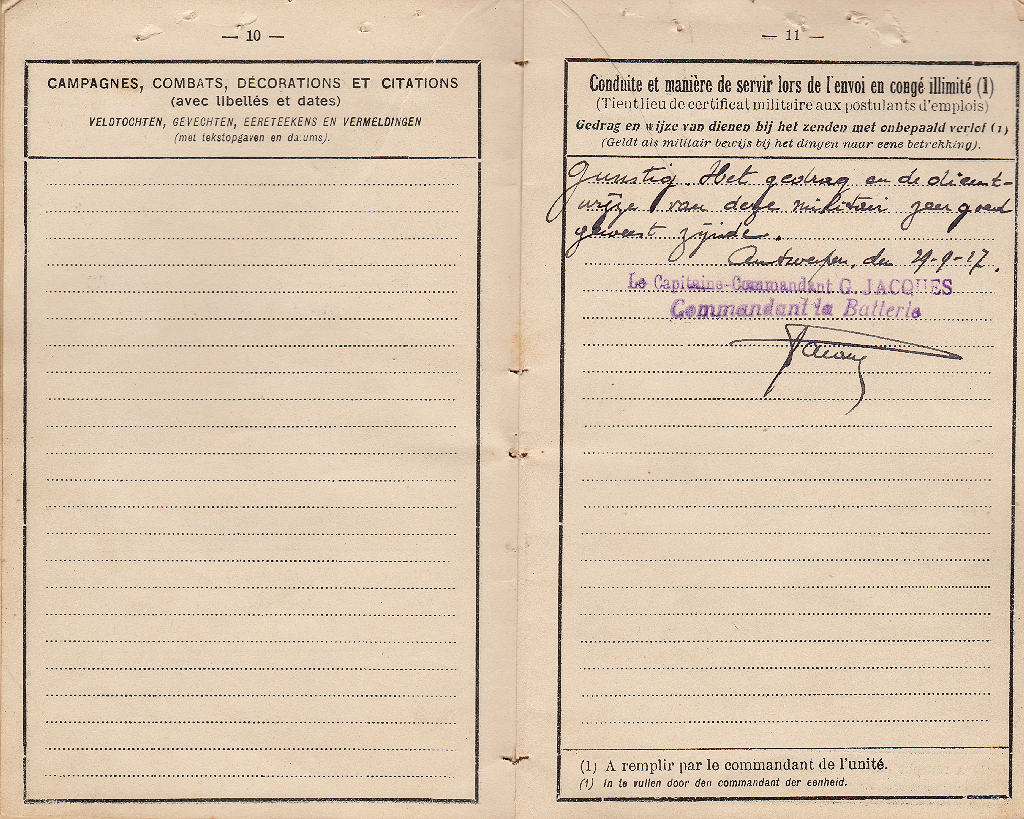 — 10 —
CAMPAGNES, COMBATS, DÉCORATIONS ET CITATIONS
(avec libellés et dates)
VELDTOCHTEN, GEVECHTEN, EERETEEKENS EN VERMELDINGEN
(met tekstopgaven en datums).
— 11 —
Conduite et manière de servir lors de l'envoi en congé illimité (1)
(Tient lieu de certificat militaire aux postulants d'emplois)
Gedrag en wijze van dienen bij het zenden met onbepaald verlof (1)
(Geldt als militair bewijs bij het dingen naar eene betrekking).
Gunstig. Het gedrag en de dienst-
wijze van deze militair zeer goed
geweest zijnde.
Antwerpen, den 29-9-27.
Le Capitaine-Commandant G. JACQUES
Commandant la Batterie
Jacques
(1) A remplir par le commandant de l'unité.
(1) In te vullen door den commandant der eenheid.